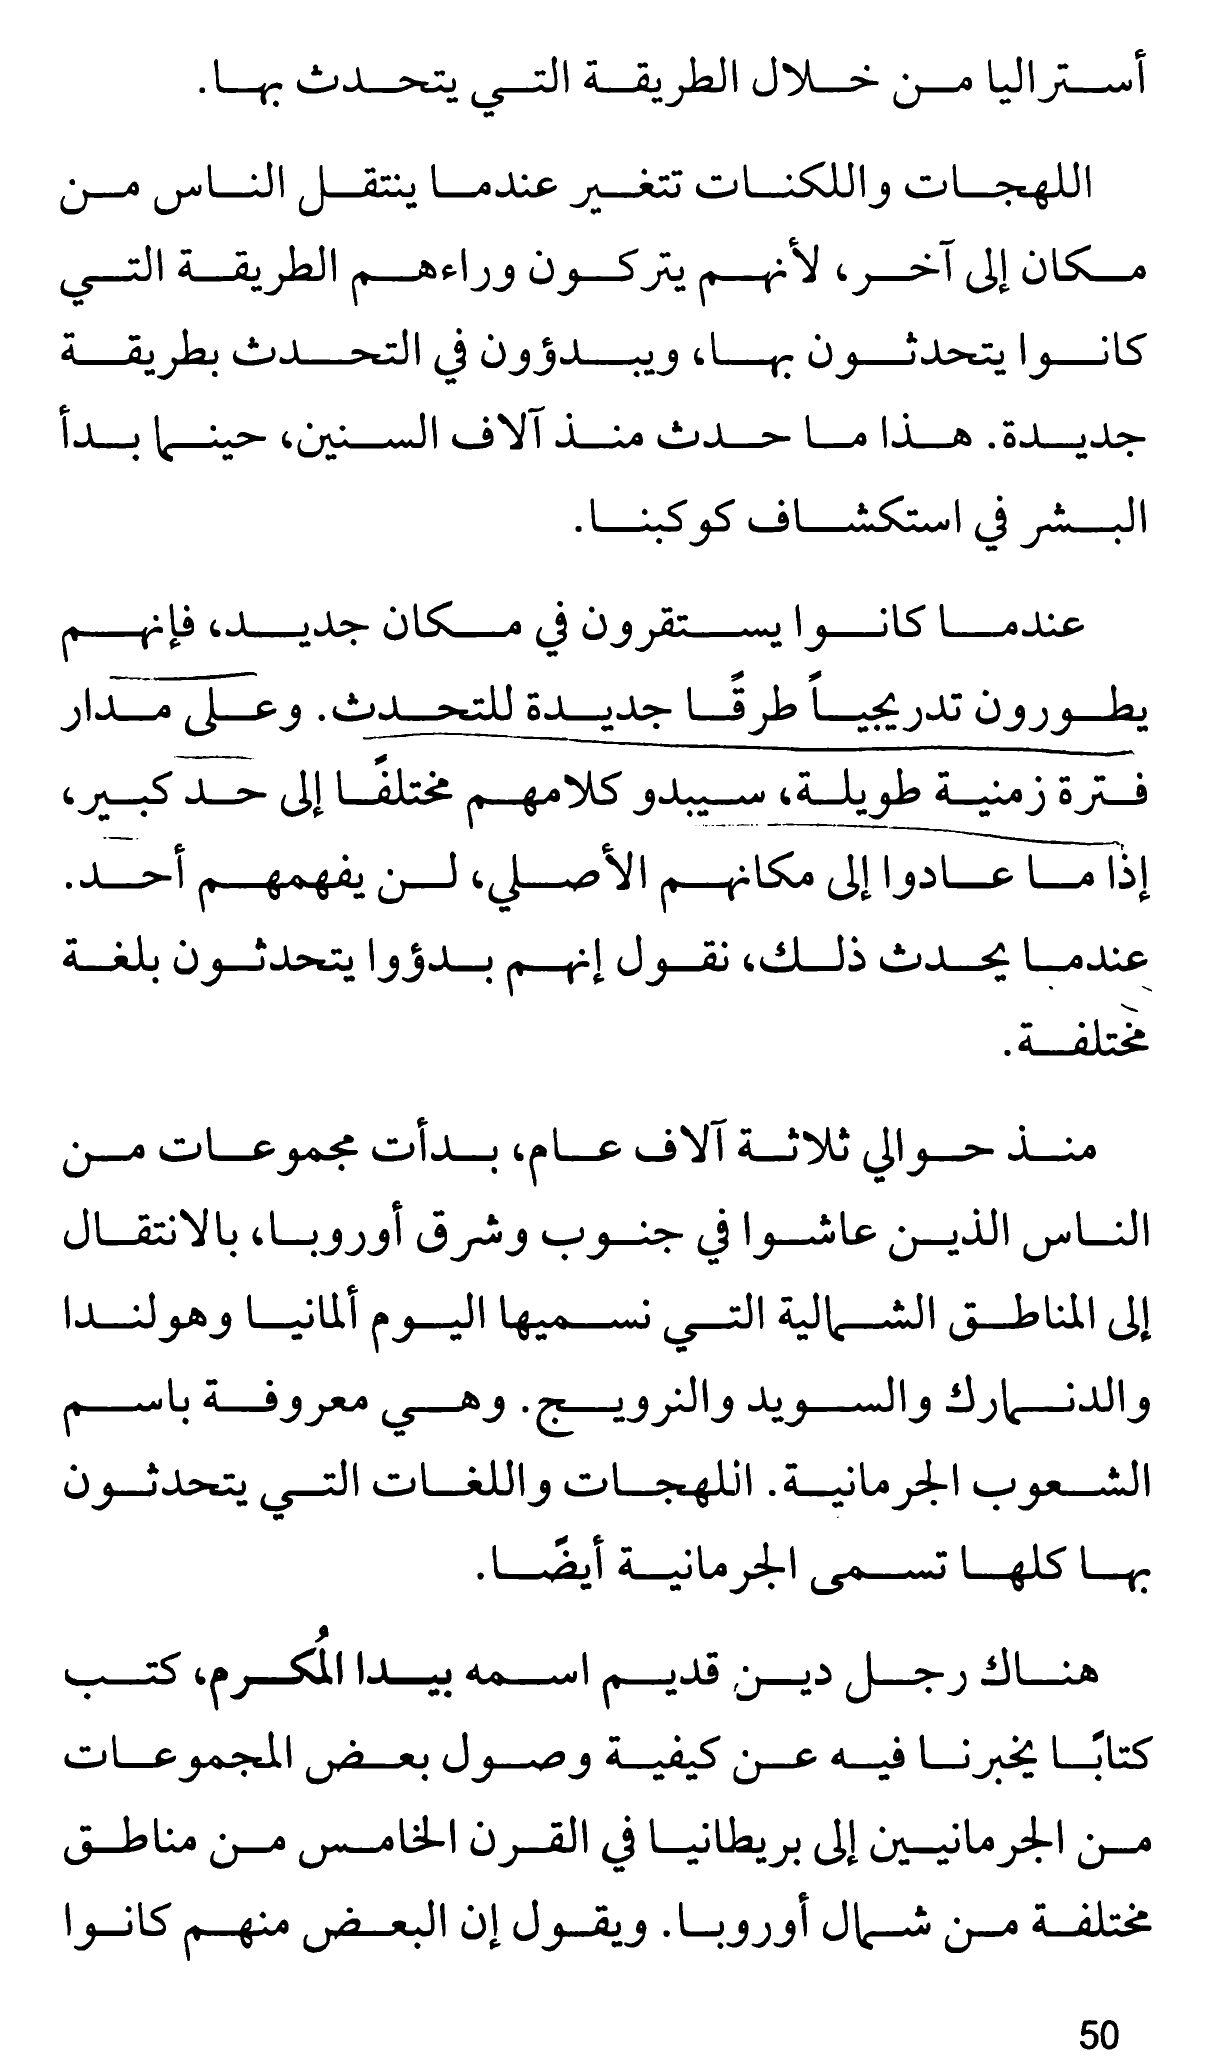 أستراليا من خلال الطريقة التي يتحدث بها.
اللهجات واللكنات تتغير عندما ينتقل الناس من
مكان إلى آخر، لأنهم يتركون وراءهم الطريقة التي
كانوا يتحدثون بها، ويبدؤون في التحدث بطريقة
جديدة. هذا ما حدث منذ آلاف السنين، حينما بدأ
البشر في استكشاف كوكبنا.
عندما كانوا يستقرون في مكان جديد، فإنهم
يطورون تدريجياً طرقًا جديدة للتحدث. وعلى مدار
فترة زمنية طويلة، سيبدو كلامهم مختلفًا إلى حد كبير،
إذا ما عادوا إلى مكانهم الأصلي، لن يفهمهم أحد.
عندما يحدث ذلك، نقول إنهم بدؤوا يتحدثون بلغة
مختلفة.
منذ حوالي ثلاثة آلاف عام، بدأت مجموعات من
الناس الذين عاشوا في جنوب وشرق أوروبا، بالانتقال
إلى المناطق الشمالية التي نسميها اليوم ألمانيا وهولندا
والدنمارك والسويد والنرويج. وهي معروفة باسم
الشعوب الجرمانية. اللهجات واللغات التي يتحدثون
بها كلها تسمى الجرمانية أيضًا.
هناك رجل دين قديم اسمه بيدا المُكرم، كتب
كتابًا يخبرنا فيه عن كيفية وصول بعض المجموعات
من الجرمانيين إلى بريطانيا في القرن الخامس من مناطق
مختلفة من شمال أوروبا. ويقول إن البعض منهم كانوا
50